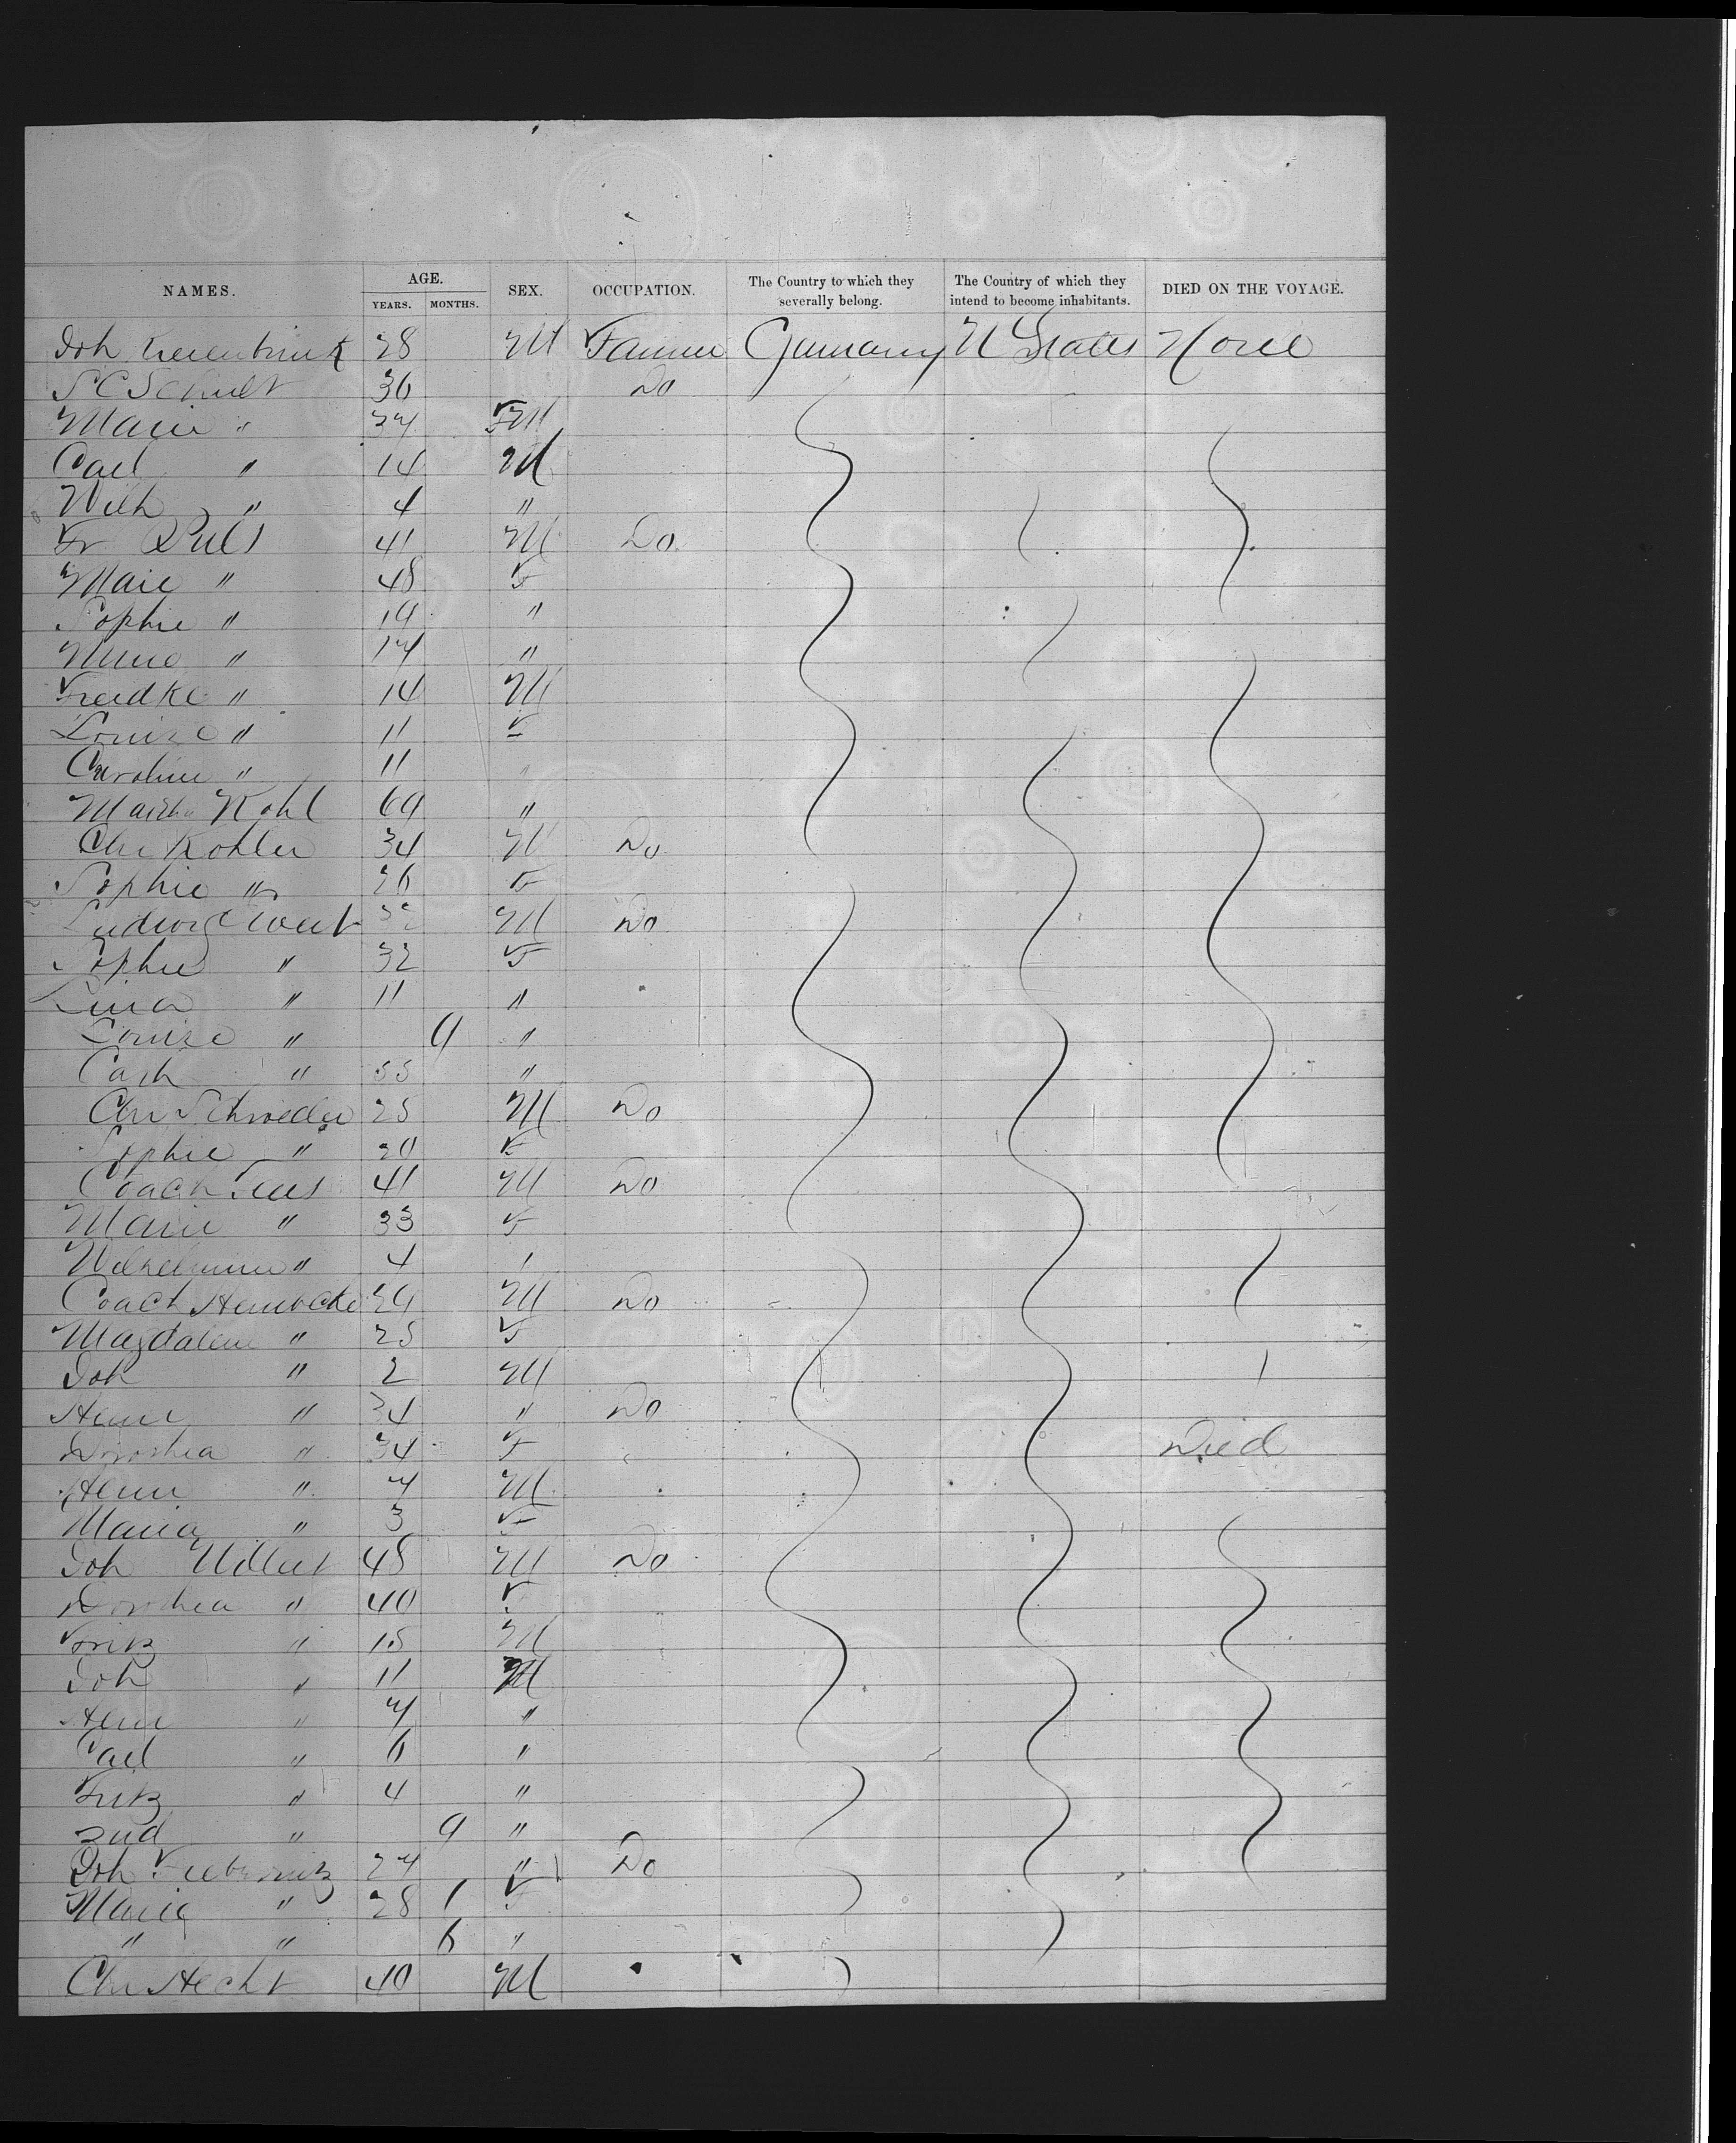 NAMES. AGE. SEX. OCCUPATION. The Country to which they severally belong. The Country of which they intend to become inhabitants. DIED ON THE VOYAGE.
YEARS. MONTHS.
Joh 28 M Farmer Germany U States None
S C Schult 36 Do
Marie " 34 F
Carl " 14 M
Wilh " 4 "
Fr Puls 41 M Do
Marie " 48 F
Sophie " 19 "
" 17 "
Friedke " 14 M
Louise " 11 F
Caroline " 11 "
Kohl 69 "
Chr Kohler 34 M Do
Sophie " 26 F
Ludwig M Do
Sophie " 32 F
Lina " 11 "
Louise " 9 "
Cath " 55 "
Chr Schroeder 25 M Do
Sophie " 20 F
41 M Do
Marie " 33 F
Wilhelmine " 4 "
29 M Do
Magdalene " 25 F
Joh " 2 M
Henr " 34 " Do
Dorothea " 34 F Died
Henr " 7 M
Maria " 3 F
Joh 48 M Do
Dorothea " 40 F
Fritz " 15 M
Joh " 11 M
Henr " 7 "
Carl " 6 "
Fritz " 4 "
" 9 "
Joh 27 " Do
Maria " 28 1 F
" " 6 "
Chr Hecht 40 M